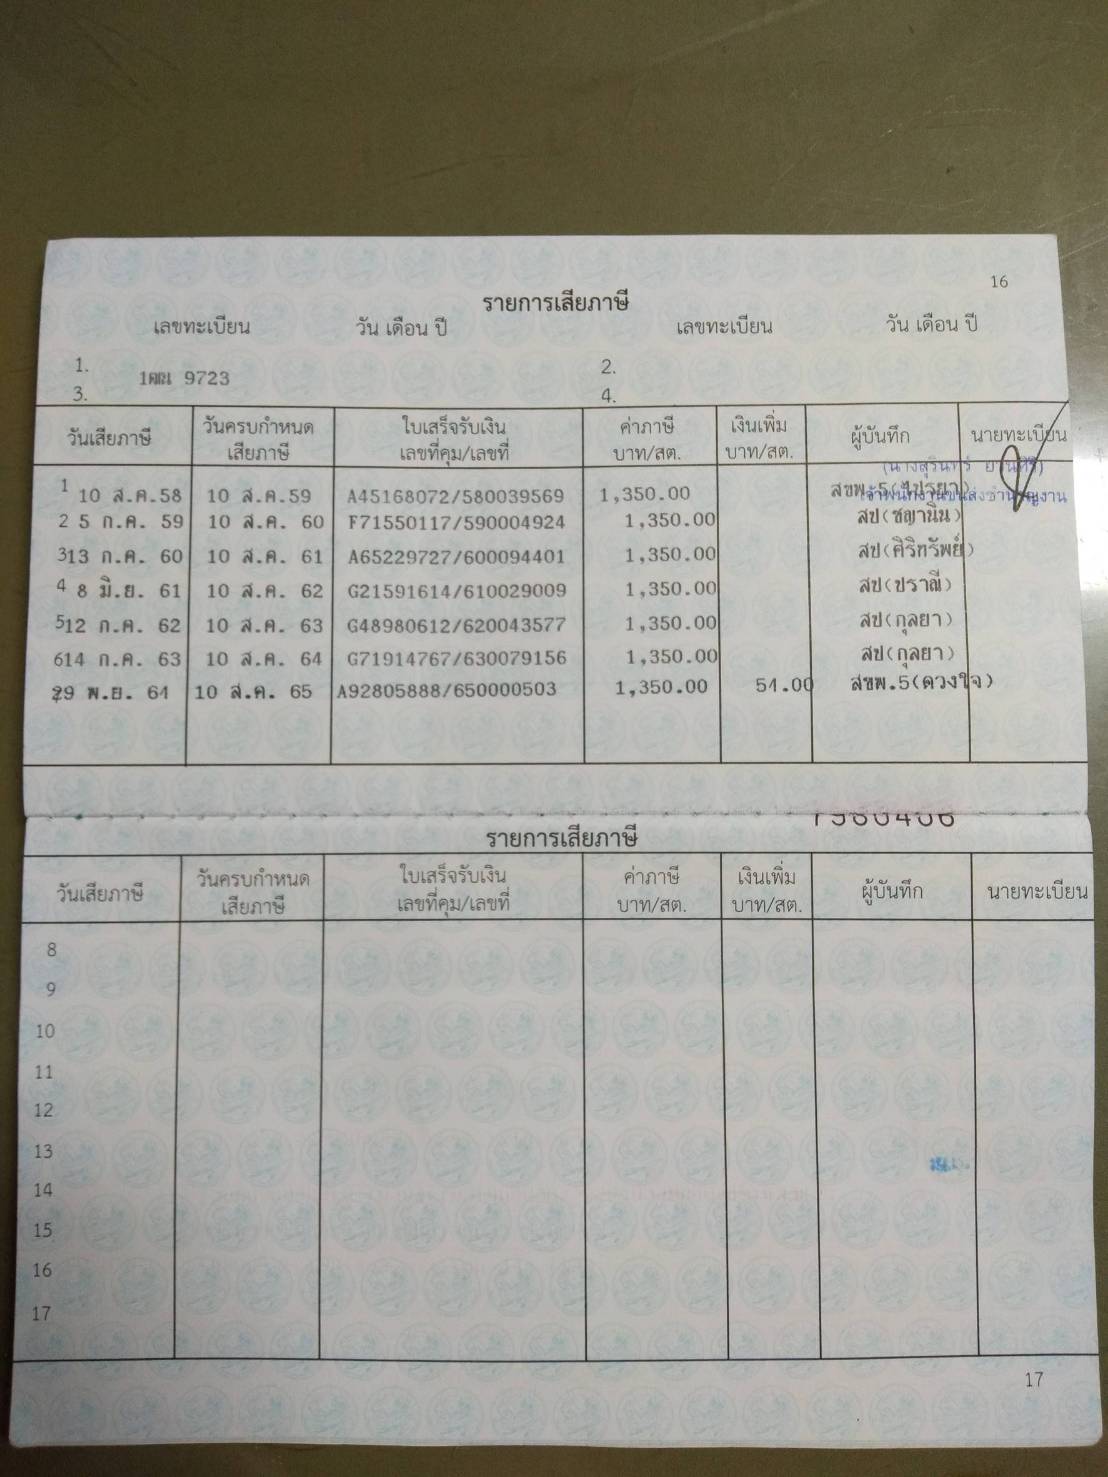 16
รายการเสียภาษี
เลขทะเบียน วัน เดือน ปี เลขทะเบียน วัน เดือน ปี
1. 2.
1ฒฌ 9723
3. 4.
วันเสียภาษี วันครบกำหนดเสียภาษี ใบเสร็จรับเงิน เลขที่คุม/เลขที่ ค่าภาษี บาท/สต. เงินเพิ่ม บาท/สต. ผู้บันทึก นายทะเบียน
(นางสุรินทร์
1 10 ส.ค.58 10 ส.ค.59 A45168072/580039569 1,350.00 สขพ.5
2 5 ก.ค. 59 10 ส.ค. 60 F71550117/590004924 1,350.00 สป(ชญานิน)
3 13 ก.ค. 60 10 ส.ค. 61 A65229727/600094401 1,350.00 สป(ศิริทรัพย์)
4 8 มิ.ย. 61 10 ส.ค. 62 G21591614/610029009 1,350.00 สป(ปราณี)
5 12 ก.ค. 62 10 ส.ค. 63 G48980612/620043577 1,350.00 สป(กุลยา)
6 14 ก.ค. 63 10 ส.ค. 64 G71914767/630079156 1,350.00 สป(กุลยา)
29 พ.ย. 64 10 ส.ค. 65 A92805888/650000503 1,350.00 54.00 สขพ.5(ดวงใจ)
รายการเสียภาษี
วันเสียภาษี วันครบกำหนดเสียภาษี ใบเสร็จรับเงิน เลขที่คุม/เลขที่ ค่าภาษี บาท/สต. เงินเพิ่ม บาท/สต. ผู้บันทึก นายทะเบียน
8
9
10
11
12
13
14
15
16
17
17